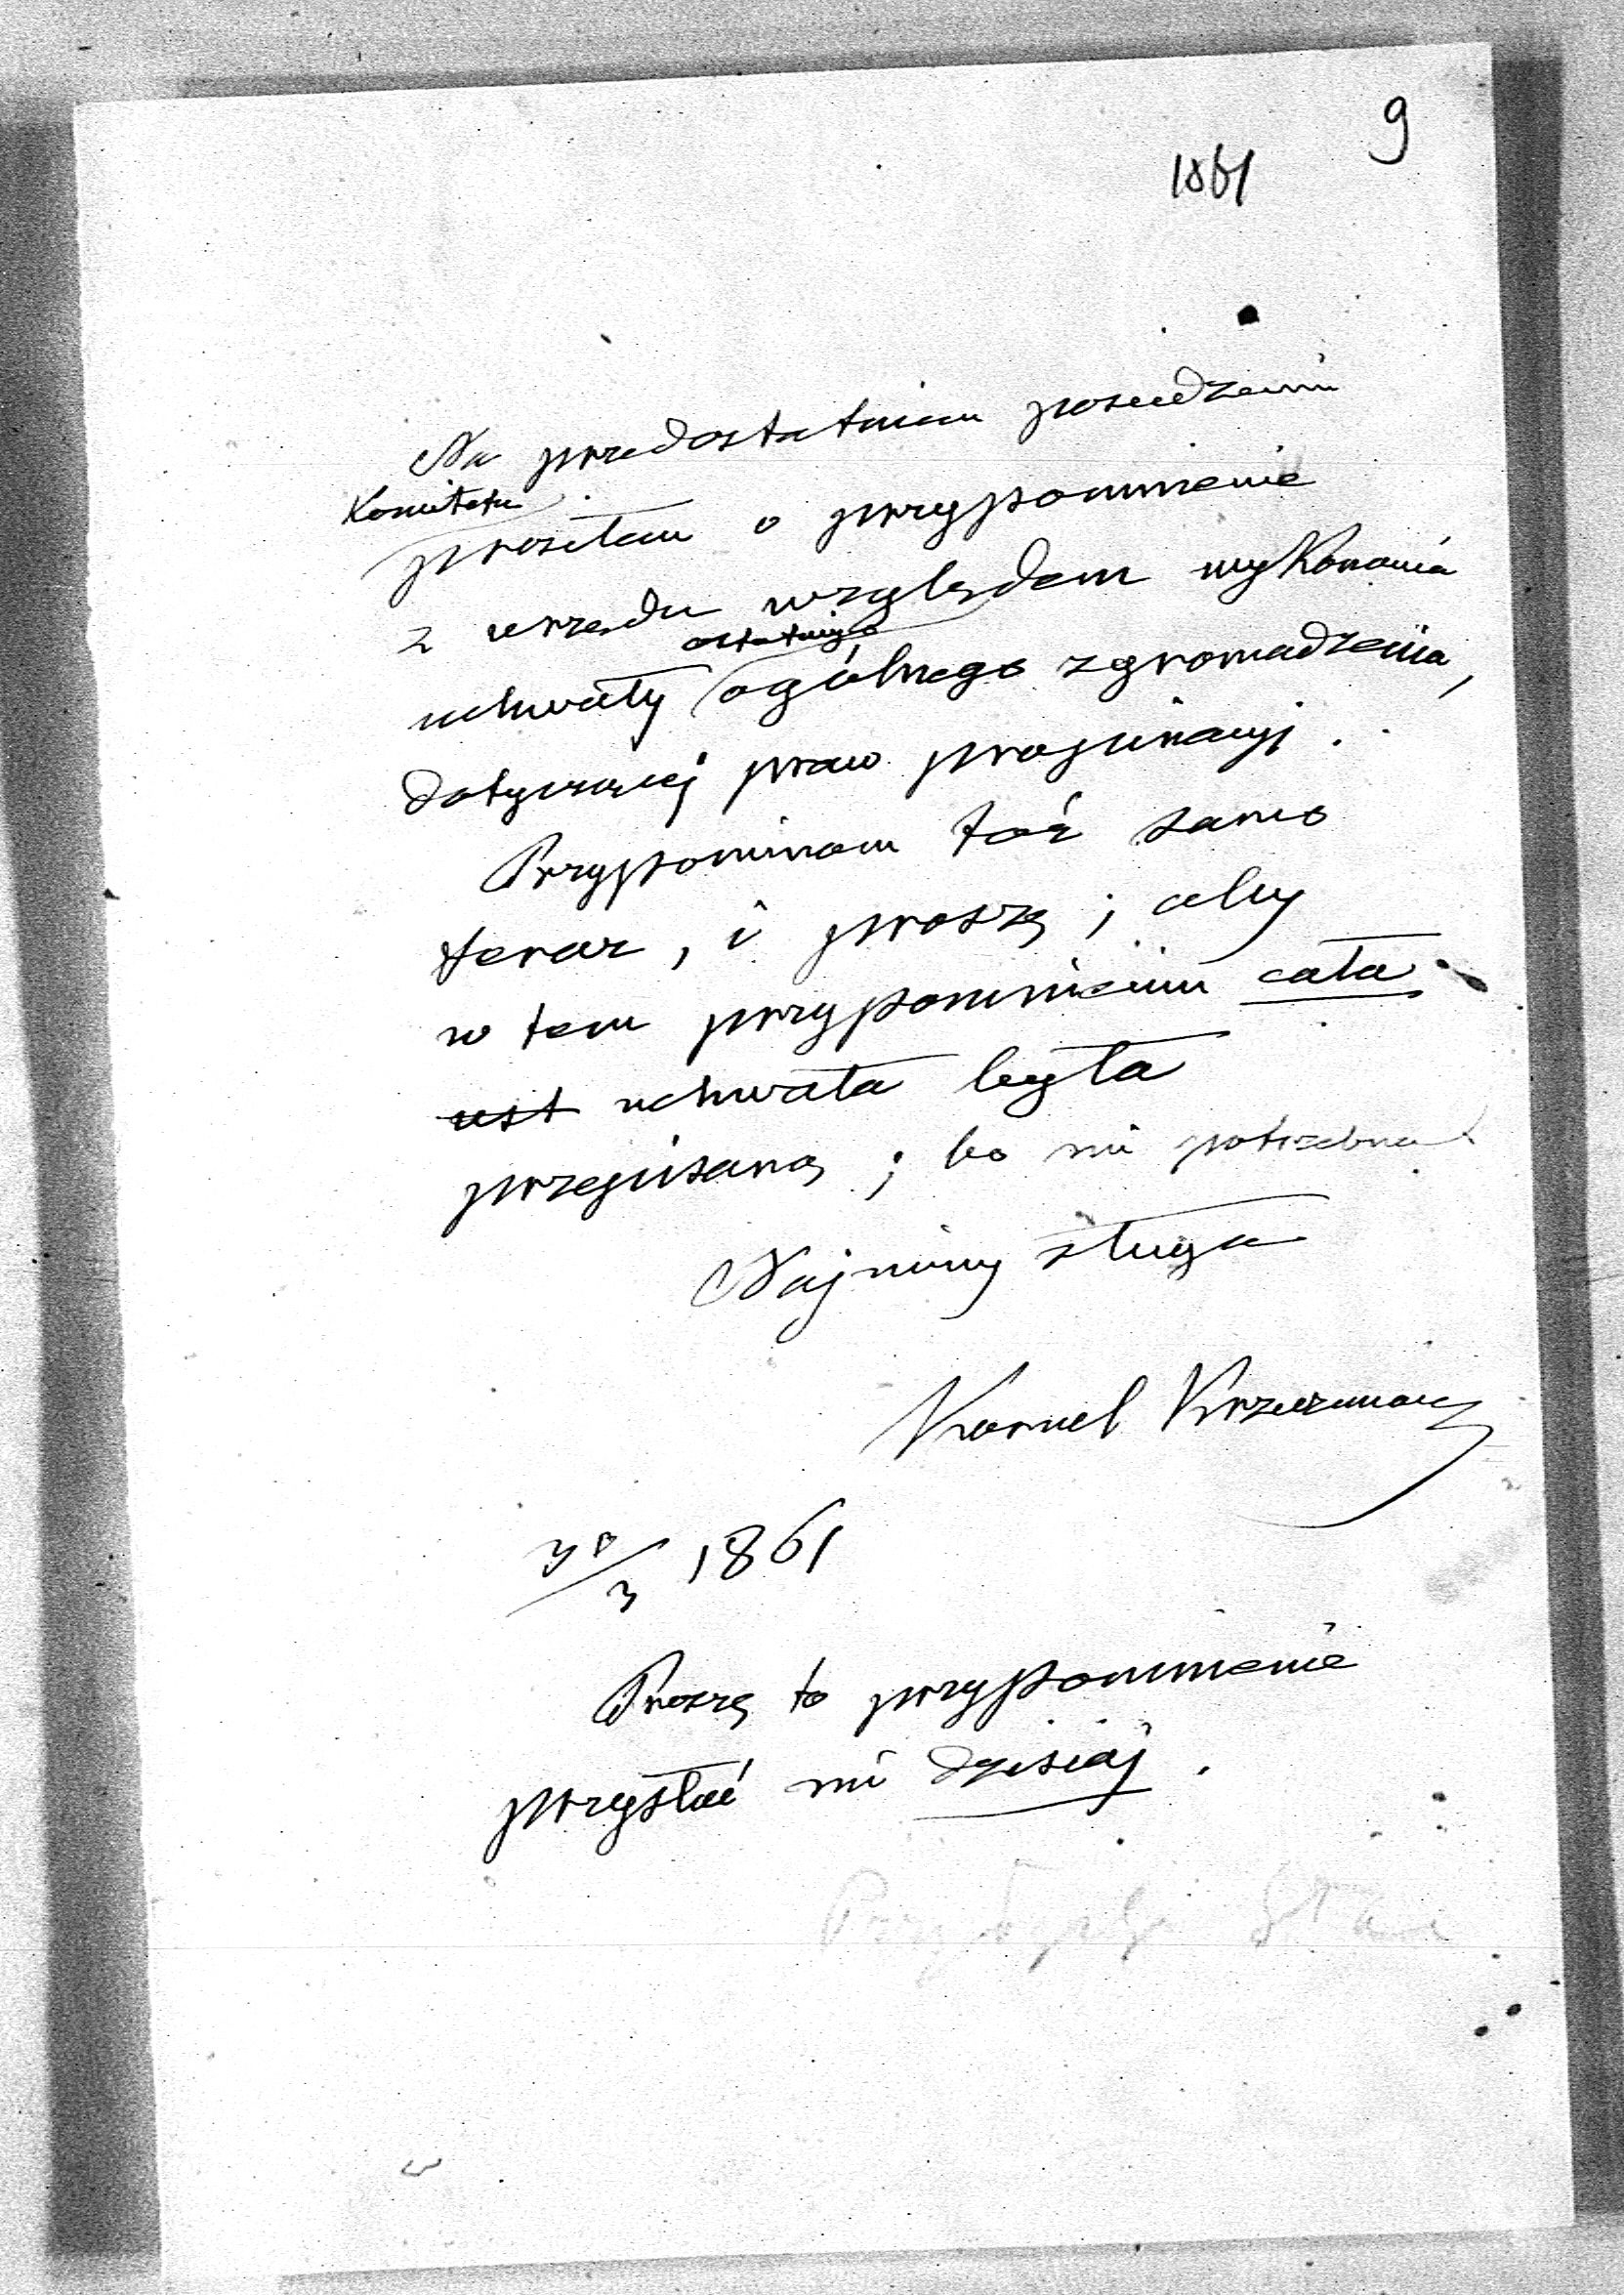 9
1861
Na przedostatniem posiedzeniu
Komitetu
prosiłem o przypomnienie
z urzędu względem wykonania
ostatniego
uchwały ogólnego zgromadzenia,
dotyczącej praw propinacyi.
Przypominam toż samo
teraz, i proszę; aby
w tem przypomnieniu cała
ust uchwała była
przepisaną; bo mi potrzebna
Najniższy sługa
Kornel Krzeczunowicz
3 1861
Proszę to przypomnienie
przysłać mi dzisiaj.